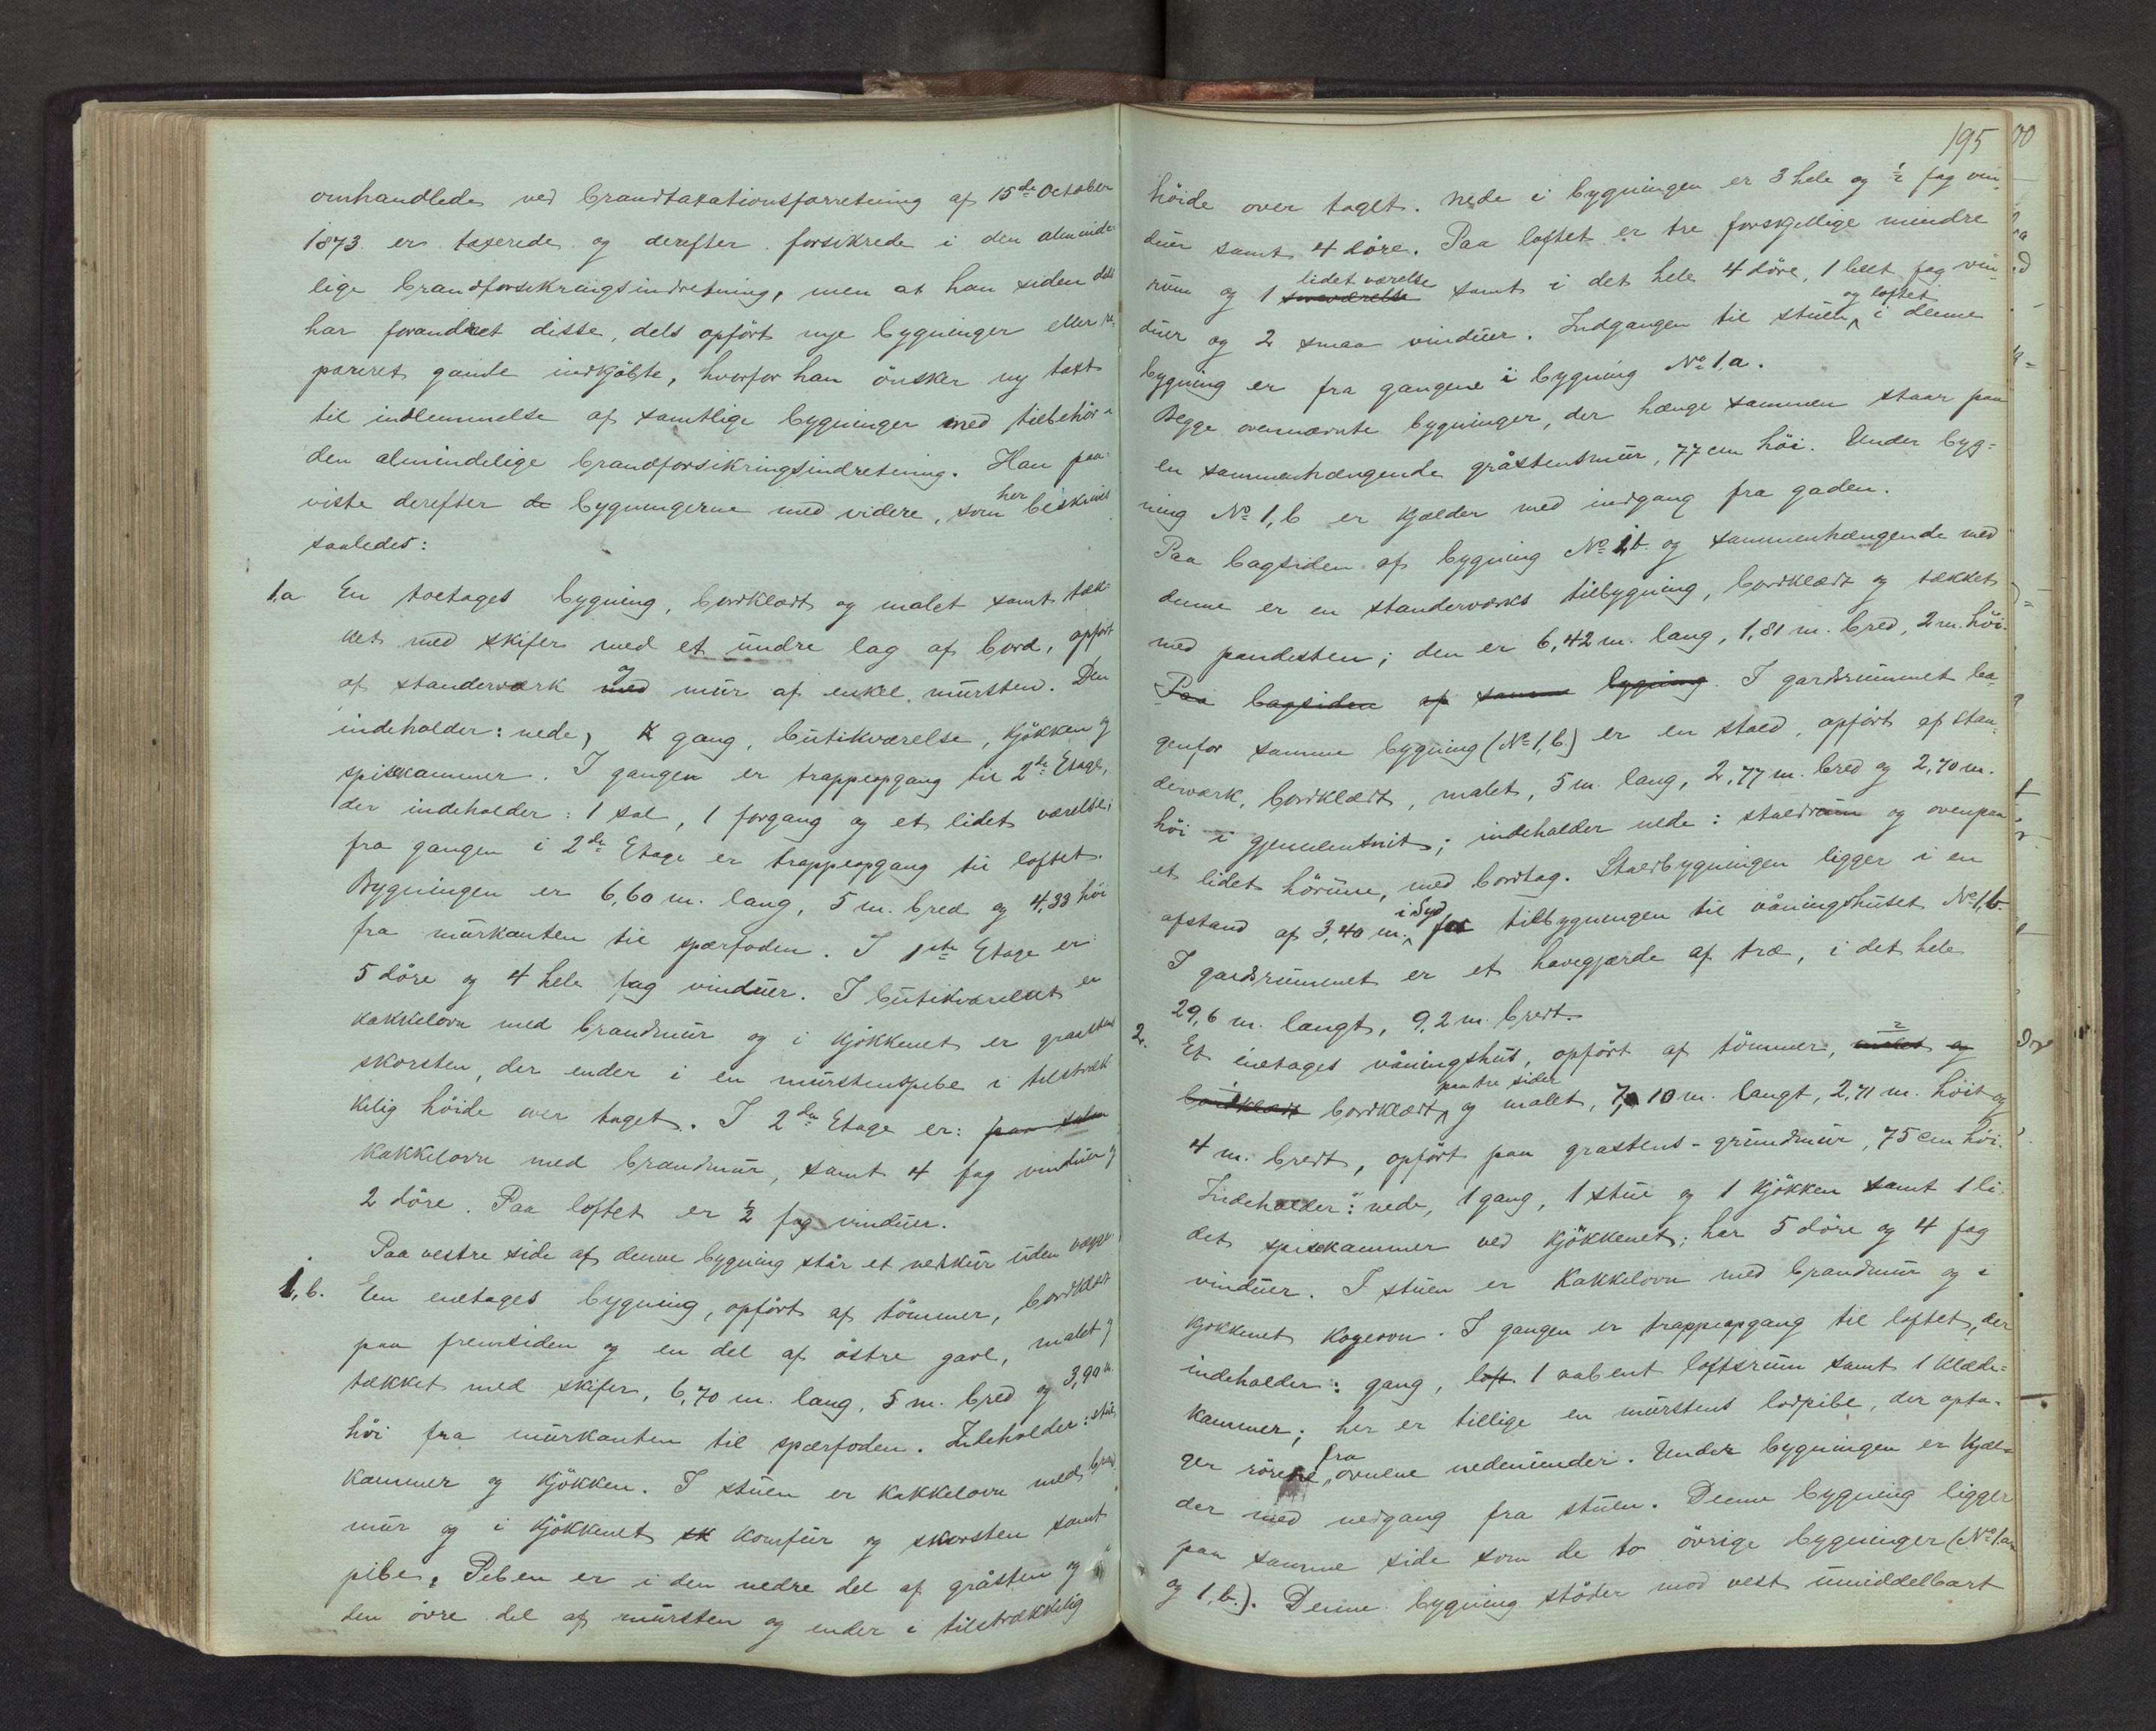 omhandlede ved brandtaxationsforretning af 15de October
1873 er taxerede og derefter forsikrede i den alminde-
lige brandforsikringsindretning, men at han siden dels
har forandret disse, dels opført nye bygninger eller re-
pareret gamle indkjöbte, hvorfor han önsker ny taxt
til indlemmelse af samtlige bygninger med tilbehör i
den almindelige brandforsikringsindretning. Han paa-
viste derefter de bygningerne med videre, som her beskrives
saaledes:
1.a En toetages bygning, bordklædt og malet samt tæk-
ket med skifer med et undre lag af bord, opført
af standerværk med og mur af enkel mursten. Den
indeholder: nede, gang, butikværelse, kjökken og
spisekammer. I gangen er trappeopgang til 2den Etage,
der indeholder: 1 sal, 1 forgang og et lidet værelse;
fra gangen i 2den Etage er trappeopgang til loftet.
Bygningen er 6,60 m. lang, 5 m. bred og 4,33 höi
fra murkanten til spærfoden. I 1ste Etage er
5 döre og 4 hele fag vinduer. I butikværelset er
kakkelovn med brandmur og i kjökkenet er graastens
skorsten, der ender i en murstenspibe i tilstræk-
kelig höide over taget. I 2den Etage er: paa salen
kakkelovn med brandmur, samt 4 fag vinduer og
2 döre. Paa loftet er ½ fag vinduer.
Paa vestre side af denne bygning står et vedskur uden vægge.
1,b. En enetages bygning, opfört af tömmer, bordklædt
paa fremsiden og en del af östre gavl, malet og
tækket med skifer, 6,70 m. lang, 5 m. bred og 3,90 m.
höi fra murkanten til spærfoden. Indeholder: stue,
kammer og kjökken. I stuen er kakkelovn med brand-
mur og i kjökkenet sk komfur og skorsten samt
pibe. Piben er i den nedre del af gråsten og i
den övre del af mursten og ender i tilstrækkelig
195
höide over taget. Nede i bygningen er 3 hele og ½ fag vin-
duer samt 4 döre. Paa loftet er tre forskjellige mindre
rum og 1 lidet værelse samt i det hele 4 döre, 1 helt fag vin-
duer og 2 smaa vinduer. Indgangen til stuen og loftet i denne
bygning er fra gangene i bygning No 1.a.
Begge ovennævnte bygninger, der hænge sammen staar paa
en sammenhængende gråstensmur, 77 cm höi. Under byg-
ning No 1,b er kjælder med indgang fra gaden.
Paa bagsiden af bygning No 1,b. og sammenhængende med
denne er en standerværks tilbygning, bordklædt og tækket
med pandesten; den er 6,42 m. lang, 1,81 m. bred, 2 m. höi.
Paa bagsiden af samme bygning. I gardsrummet ba-
genfor samme bygning (No 1,b.) er en stald, opfört af stan-
derværk, bordklædt, malet, 5 m. lang, 2,77 m. bred og 2,70 m.
höi i gjennemsnit; indeholder nede: staldrum og ovenpaa
et lidet hörum, med bordtag. Staldbygningen ligger i en
afstand af 3,40 m. i Syd for tilbygningen til våningshuset No 1,b.
I gardsrummet er et havegjærde af træ, i det hele
29,6 m. langt, 9,2 m. bredt.
2. Et enetages våningshus, opfört af tömmer, malet og
bordklædt bordklædt paa tre sider og malet, 7,10 m. langt, 2,71 m. höit og
4 m. bredt, opfört paa grastens-grundmur, 75 cm höi.
Indeholder: nede, 1 gang, 1 stue og 1 kjökken samt 1 li-
det spisekammer ved kjökkenet; har 5 döre og 4 fag
vinduer. I stuen er kakkelovn med brandmur og i
kjökkenet kogeovn. I gangen er trappeopgang til loftet, der
indeholder: gang, loft 1 aabent loftsrum samt 1 klæde-
kammer; her er tillige en murstens lodpibe, der opta-
ger rörene fra ovnene nedenunder. Under bygningen er kjæl-
der med nedgang fra stuen. Denne bygning ligger
paa samme side som de to övrige bygninger (No 1,a.
og 1,b.). Denne bygning stöder mod vest umiddelbart